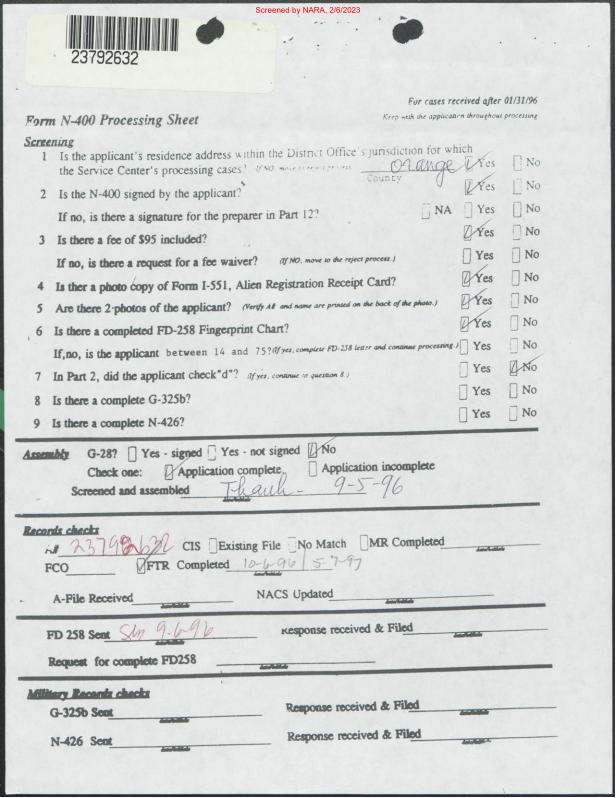 Screened by NARA, 2/6/2023
23792632
For cases received after 01/31/96
Form N-400 Processing Sheet
Keep with the application throughout processing
Screening
1 Is the applicant's residence address within the District Office's jurisdiction for which
the Service Center's processing cases? (If NO, move to reject process. orange Yes No
County
2 Is the N-400 signed by the applicant? Yes No
If no, is there a signature for the preparer in Part 12? NA Yes No
3 Is there a fee of $95 included? Yes No
If no, is there a request for a fee waiver? (If NO, move to the reject process.) Yes No
4 Is ther a photo copy of Form I-551, Alien Registration Receipt Card? Yes No
5 Are there 2 photos of the applicant? (Verify A# and name are printed on the back of the photo.) Yes No
6 Is there a completed FD-258 Fingerprint Chart? Yes No
If,no, is the applicant between 14 and 75?(If yes, complete FD-258 letter and continue processing.) Yes No
7 In Part 2, did the applicant check"d"? (If yes, continue to question 8.) Yes No
8 Is there a complete G-325b? Yes No
9 Is there a complete N-426? Yes No
Assembly G-28? Yes - signed Yes - not signed No
Check one: Application complete Application incomplete
Screened and assembled Thanh - 9-5-96
Records checks
A# 23792632 CIS Existing File No Match MR Completed
FCO FTR Completed 10-6-96 / 5-7-97
A-File Received NACS Updated
FD 258 Sent 9-6-96 Response received & Filed
Request for complete FD258
Military Records checks
G-325b Sent Response received & Filed
N-426 Sent Response received & Filed